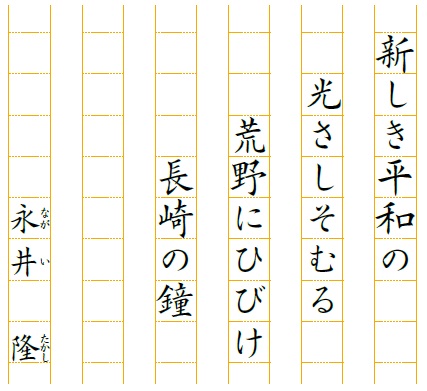 新しき平和の
光さしそむる
荒野にひびけ
長崎の鐘
永井 隆
ながい たかし